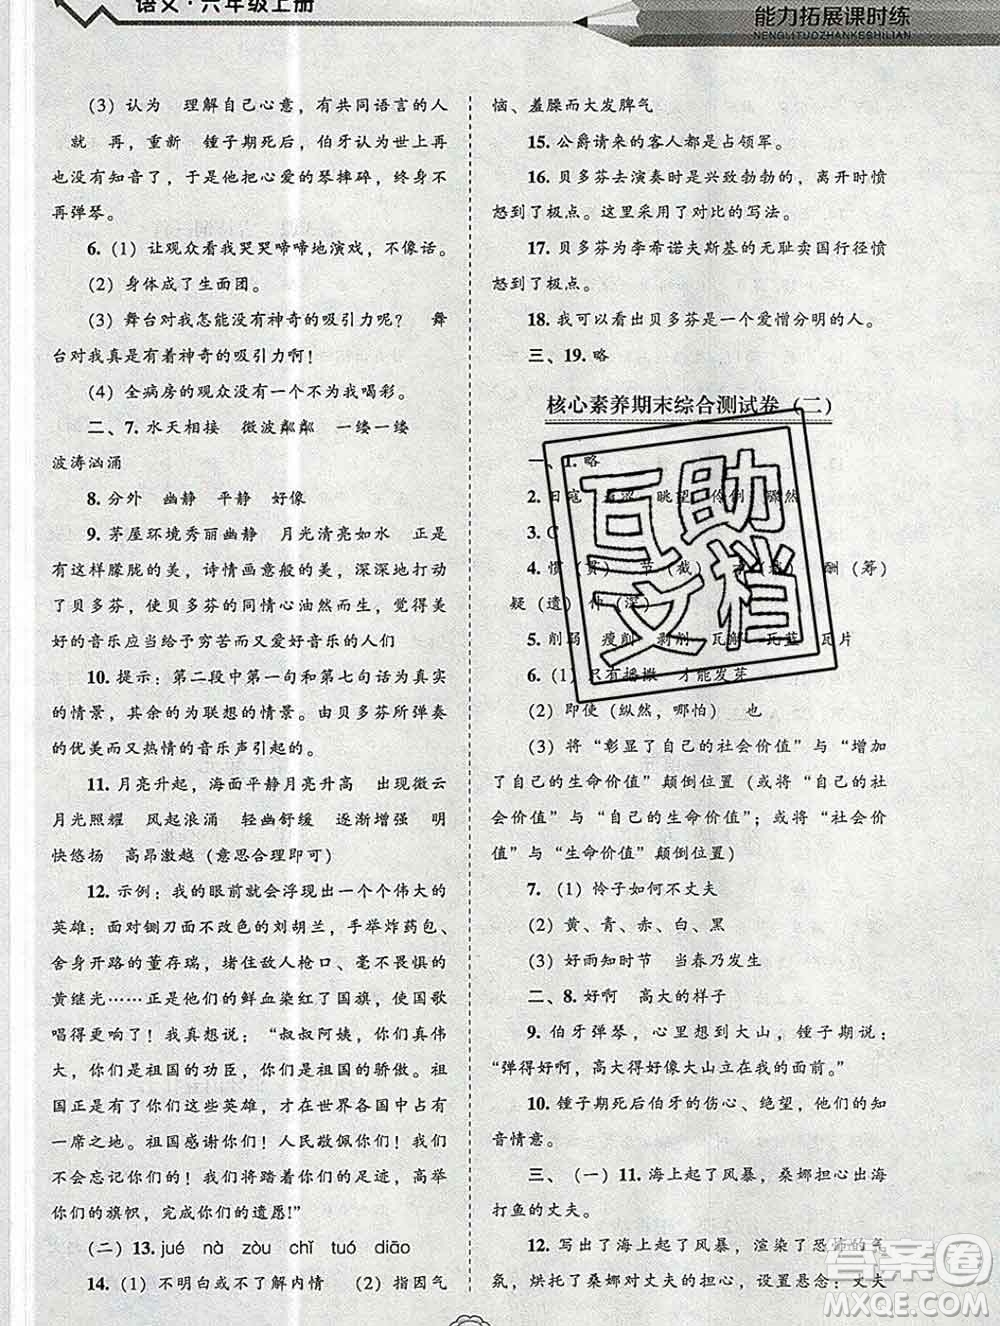 语文·六年级上册
能力拓展课时练
NENGLITUOZHANKESHILIAN
(3) 认为　理解自己心意，有共同语言的人
就　再，重新　锺子期死后，伯牙认为世上再
也没有知音了，于是他把心爱的琴摔碎，终身不
再弹琴。
6. (1) 让观众看我哭哭啼啼地演戏，不像话。
(2) 身体成了生面团。
(3) 舞台对我怎能没有神奇的吸引力呢？　舞
台对我真是有着神奇的吸引力啊！
(4) 全病房的观众没有一个不为我喝彩。
二、7. 水天相接　微波粼粼　一缕一缕
波涛汹涌
8. 分外　幽静　平静　好像
9. 茅屋环境秀丽幽静　月光清亮如水　正是
有这样朦胧的美，诗情画意般的美，深深地打动
了贝多芬，使贝多芬的同情心油然而生，觉得美
好的音乐应当给予穷苦而又爱好音乐的人们
10. 提示：第二段中第一句和第七句话为真实
的情景，其余的为联想的情景。由贝多芬所弹奏
的优美而又热情的音乐声引起的。
11. 月亮升起，海面平静月亮升高　出现微云
月光照耀　风起浪涌　轻幽舒缓　逐渐增强　明
快悠扬　高昂激越（意思合理即可）
12. 示例：我的眼前就会浮现出一个个伟大的
英雄：面对铡刀面不改色的刘胡兰，手举炸药包、
舍身开路的董存瑞，堵住敌人枪口、毫不畏惧的
黄继光……正是他们的鲜血染红了国旗，使国歌
唱得更响了！我真想说：“叔叔阿姨，你们真伟
大，你们是祖国的功臣，你们是祖国的骄傲。祖
国正是有了你们这些英雄，才在世界各国中占有
一席之地。祖国感谢你们！人民敬佩你们！我们
不会忘记你们的！我们将踏着你们的足迹，高举
你们的旗帜，完成你们的遗愿！”
(二) 13. jué　nà　zòu　chǐ　tuó　diāo
14. (1) 不明白或不了解内情　(2) 指因气
恼、羞臊而大发脾气
15. 公爵请来的客人都是占领军。
16. 贝多芬去演奏时是兴致勃勃的，离开时愤
怒到了极点。这里采用了对比的写法。
17. 贝多芬为李希诺夫斯基的无耻卖国行径愤
怒到了极点。
18. 我可以看出贝多芬是一个爱憎分明的人。
三、19. 略
核心素养期末综合测试卷（二）
一、1. 略
2. 日寇　眺望　伶俐　骤然
3. C
4. 惯（贯）　节（截）　酬（筹）
疑（遗）　伸（深）
5. 削弱　瘦削　剥削　瓦解　瓦蓝　瓦片
6. (1) 只有播撒　才能发芽
(2) 即使（纵然，哪怕）　也
(3) 将“彰显了自己的社会价值”与“增加
了自己的生命价值”颠倒位置（或将“自己的社
会价值”与“自己的生命价值”；或将“社会价
值”与“生命价值”颠倒位置）
7. (1) 怜子如何不丈夫
(2) 黄、青、赤、白、黑
(3) 好雨知时节　当春乃发生
二、8. 好啊　高大的样子
9. 伯牙弹琴，心里想到大山，锺子期说：
“弹得好啊，高大得好像大山立在我的面前。”
10. 锺子期死后伯牙的伤心、绝望，他们的知
音情意。
三、(一) 11. 海上起了风暴，桑娜担心出海
打鱼的丈夫。
12. 写出了海上起了风暴，渲染了恐怖的气
氛，烘托了桑娜对丈夫的担心，设置悬念：丈夫
互助
文档
答案圈
MXQE.COM